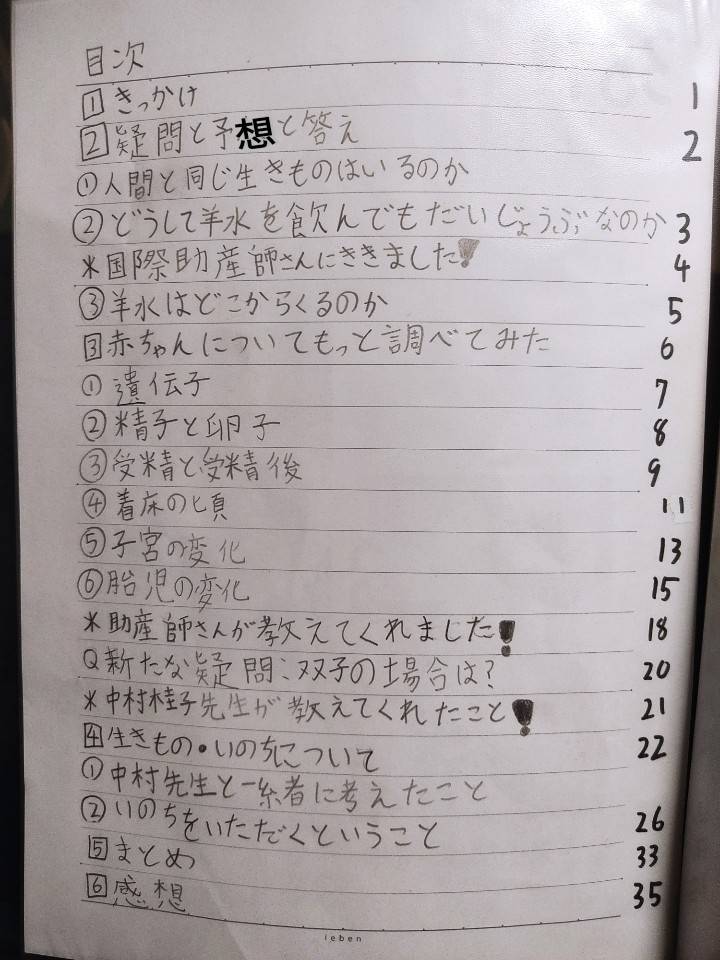 目次
1 きっかけ 1
2 疑問と予想と答え 2
① 人間と同じ生きものはいるのか
② どうして羊水を飲んでもだいじょうぶなのか 3
* 国際助産師さんにききました! 4
③ 羊水はどこからくるのか 5
3 赤ちゃんについてもっと調べてみた 6
① 遺伝子 7
② 精子と卵子 8
③ 受精と受精後 9
④ 着床の頃 11
⑤ 子宮の変化 13
⑥ 胎児の変化 15
* 助産師さんが教えてくれました! 18
Q 新たな疑問:双子の場合は? 20
* 中村桂子先生が教えてくれたこと! 21
4 生きもの・いのちについて 22
① 中村先生と一緒に考えたこと
② いのちをいただくということ 26
5 まとめ 33
6 感想 35
ieben